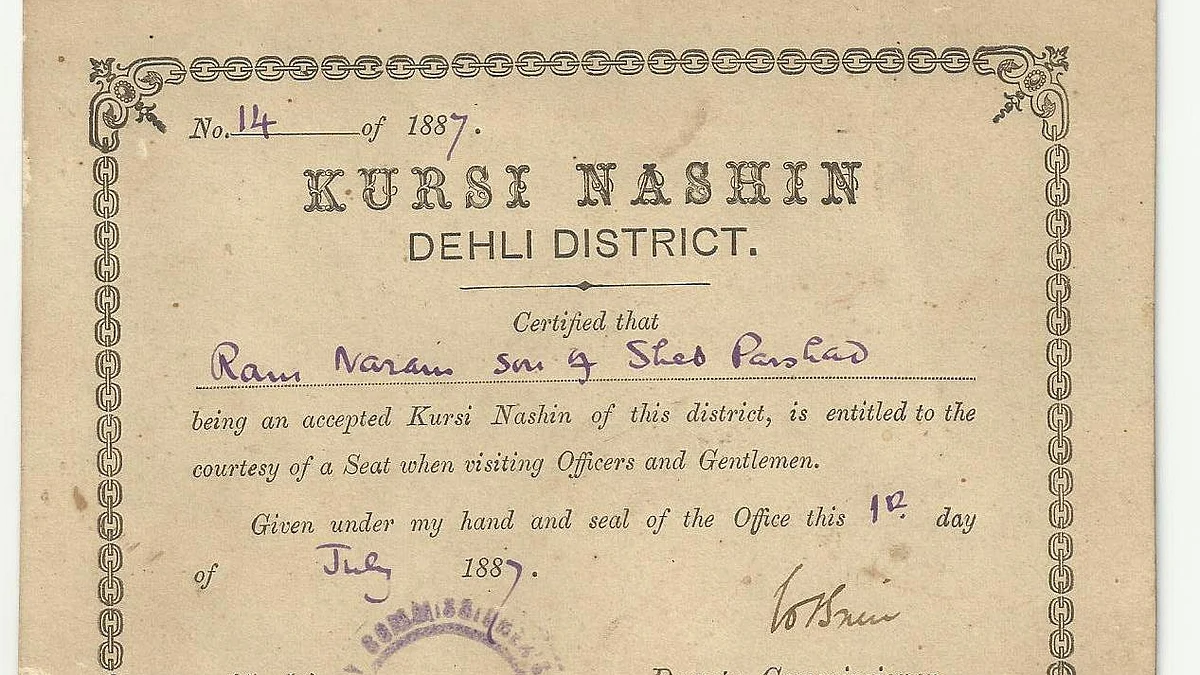 No. 14 of 1887.
KURSI NASHIN
DEHLI DISTRICT.
Certified that
Ram Narain son of Sheo Parshad
being an accepted Kursi Nashin of this district, is entitled to the
courtesy of a Seat when visiting Officers and Gentlemen.
Given under my hand and seal of the Office this 1st day
of July 1887.
COMMISSIONER'S